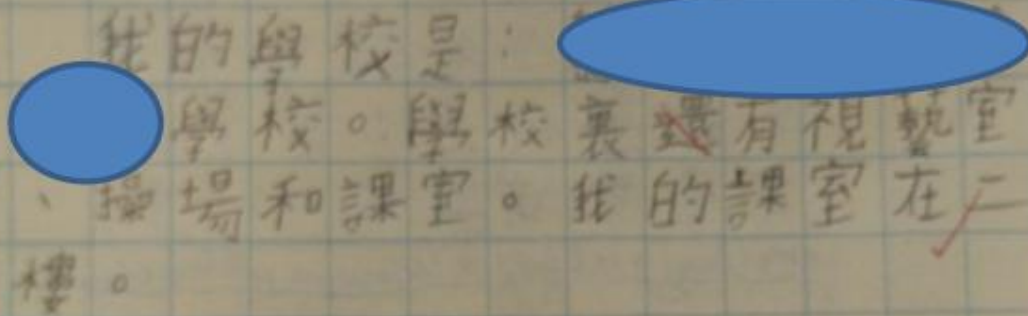 我的學校是：
學校。學校裏還有視藝室
、操場和課室。我的課室在二
樓。